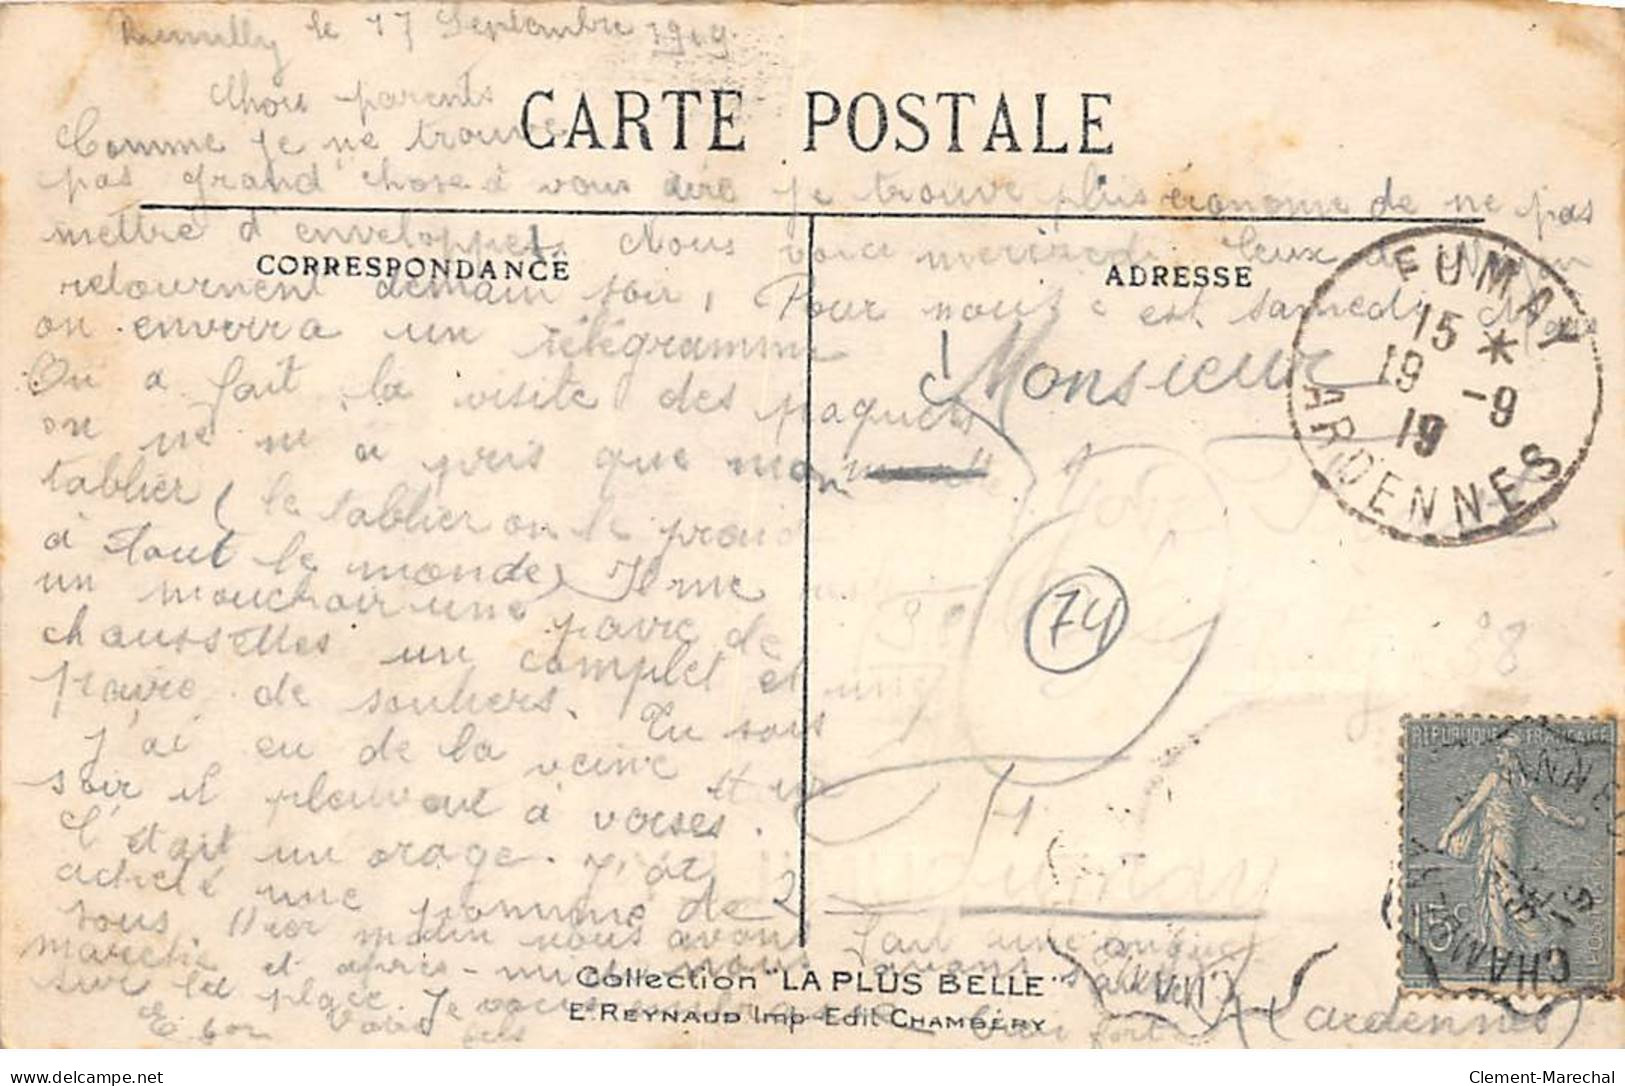 Rumilly le 17 Septembre 1919.
Chers parents
CARTE POSTALE
Comme je ne trouve
pas grand chose à vous dire je trouve plus économe de ne pas
mettre d'enveloppe. Nous voici mercredi. Ceux de
CORRESPONDANCE
ADRESSE
retournent demain soir, Pour nous c'est samedi
on enverra un télégramme
On a fait la visite des paquets
on ne m'a pris que mon
tablier (le tablier on le prend
à tout le monde)
un mouchoir une paire de
chaussettes un complet et une
paire de souliers. Tu sais
j'ai eu de la veine
soir il pleuvait à verses.
C'était un orage. J'ai
acheté une pomme de 2
sous. Hier matin nous avons fait une
marche et après-midi nous avons
sur la place. Je vous embrasse bien fort
Votre fils
Monsieur
74
38
Fumay
(Ardennes)
FUMAY
15 *
19 -9
19
ARDENNES
REPUBLIQUE FRANÇAISE
15c
ANNECY
CHAMBERY
Collection "LA PLUS BELLE"
E. REYNAUD Imp-Edit CHAMBÉRY
Clement-Marechal